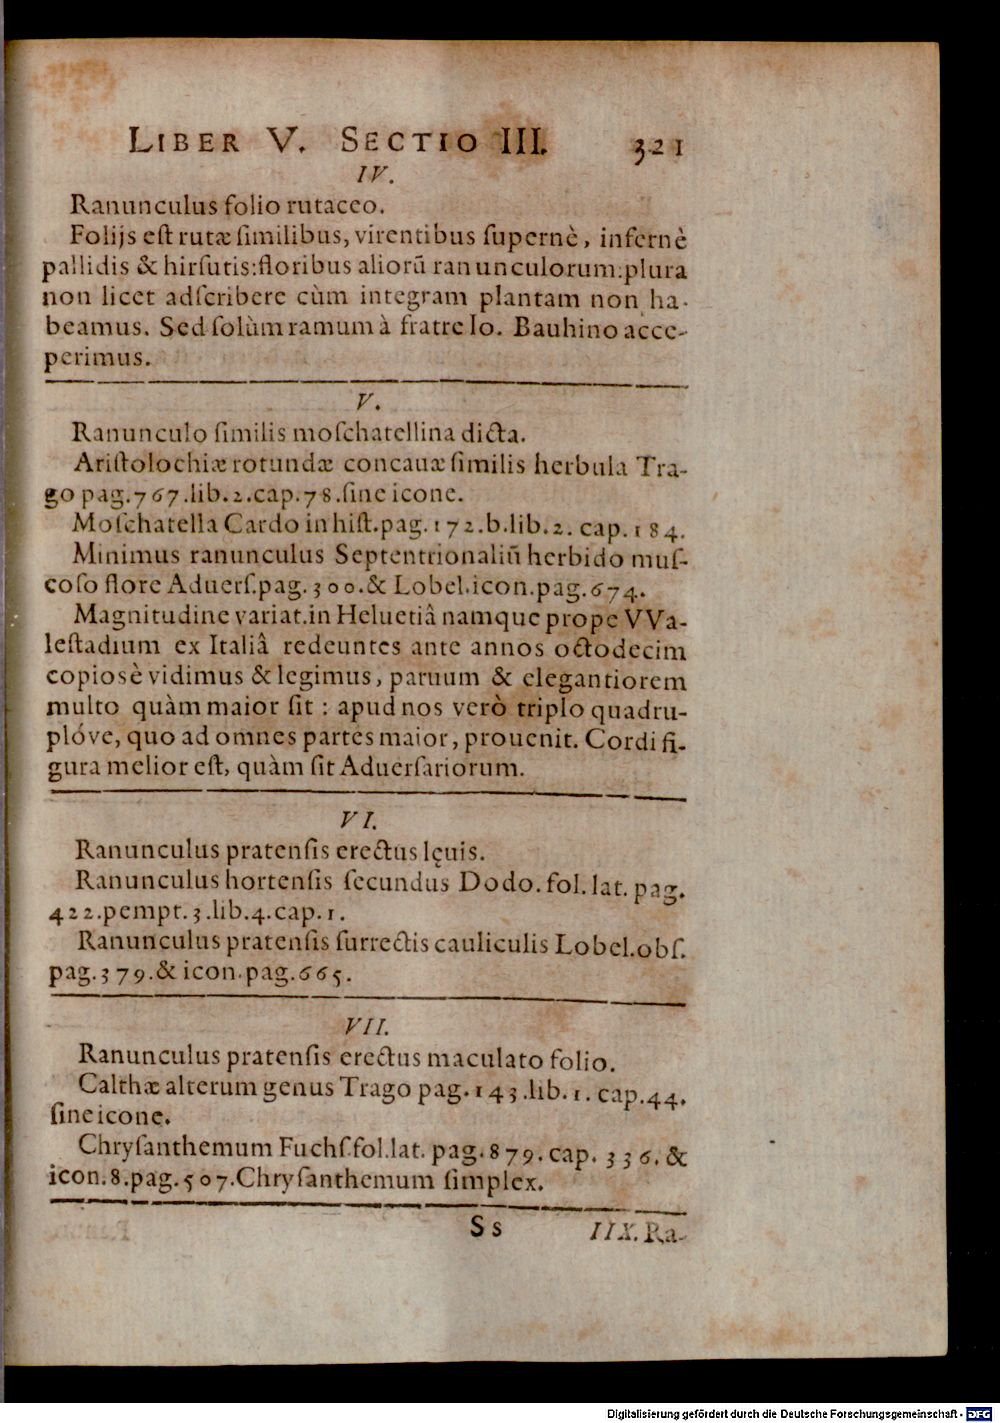 LIBER V. SECTIO III. 321
IV.
Ranunculus folio rutaceo.
Folijs est rutæ similibus, virentibus supernè, infernè
pallidis & hirsutis: floribus aliorũ ranunculorum: plura
non licet adscribere cùm integram plantam non ha-
beamus. Sed solùm ramum à fratre Io. Bauhino acce-
perimus.
V.
Ranunculo similis moschatellina dicta.
Aristolochiæ rotundæ concauæ similis herbula Tra-
go pag. 767. lib. 2. cap. 78. sine icone.
Moschatella Cardo in hist. pag. 172. b. lib. 2. cap. 184.
Minimus ranunculus Septentrionaliũ herbido mus-
coso flore Aduers. pag. 300. & Lobel. icon. pag. 674.
Magnitudine variat. in Heluetiâ namque prope VVa-
lestadium ex Italiâ redeuntes ante annos octodecim
copiosè vidimus & legimus, paruum & elegantiorem
multo quàm maior sit : apud nos verò triplo quadru-
plóve, quo ad omnes partes maior, prouenit. Cordi fi-
gura melior est, quàm sit Aduersariorum.
VI.
Ranunculus pratensis erectus lęuis.
Ranunculus hortensis secundus Dodo. fol. lat. pag.
422. pempt. 3. lib. 4. cap. 1.
Ranunculus pratensis surrectis cauliculis Lobel. obs.
pag. 379. & icon. pag. 665.
VII.
Ranunculus pratensis erectus maculato folio.
Calthæ alterum genus Trago pag. 143. lib. 1. cap. 44.
sine icone.
Chrysanthemum Fuchs. fol. lat. pag. 879. cap. 336. &
icon. 8. pag. 507. Chrysanthemum simplex.
Ss IIX. Ra-
Digitalisierung gefördert durch die Deutsche Forschungsgemeinschaft - DFG